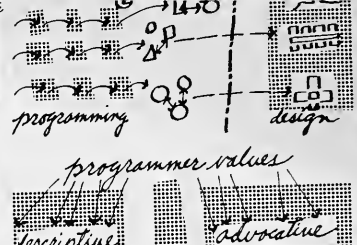 programming design
programmer values
descriptive advocative